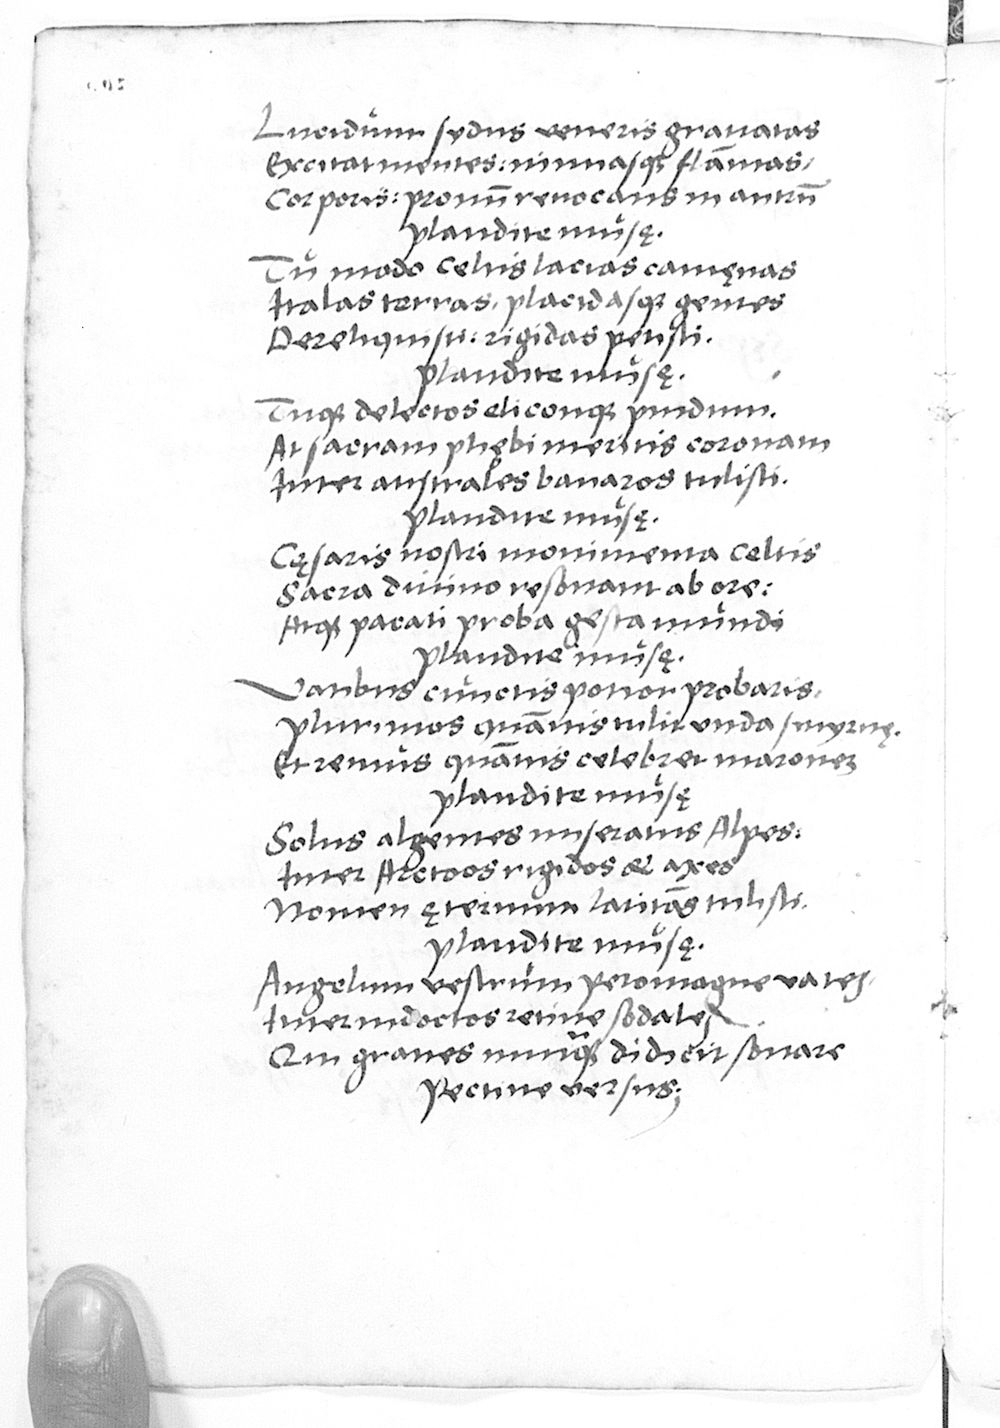 Lucidum sydus veneris grauatas
Excitat mentes: nimiasqꝫ flāmas,
Corporis: pronū reuocans in antrū
plaudite musę.
Tu modo Celtis lacias camęnas
Italas terras, placidasqꝫ gentes
Dereliquisti: rigidas petisti.
plaudite musę.
Tuqꝫ delectos eliconqꝫ pindum.
At sacram phębi meritis coronam
Inter australes bauaros tulisti.
plaudite musę.
Cęsaris nostri monimenta Celtis
Sacra diuino resonant ab ore:
Atqꝫ pacati proba gesta mundi
plaudite musę.
Vatibus cunctis potior probaris,
plurimos quāuis tulit vnda smyrnę.
Et remus quāuis celebret maronem
plaudite musę
Solus algentes miseratus Alpes:
Inter Arctoos rigidos & axes
Nomen ęternum latitās tulisti.
plaudite musę.
Angelum vestrum pero magne vates,
Inter indoctos retine sodales
Qui graues nunqꝫ didicit sonare
Pectine versus;